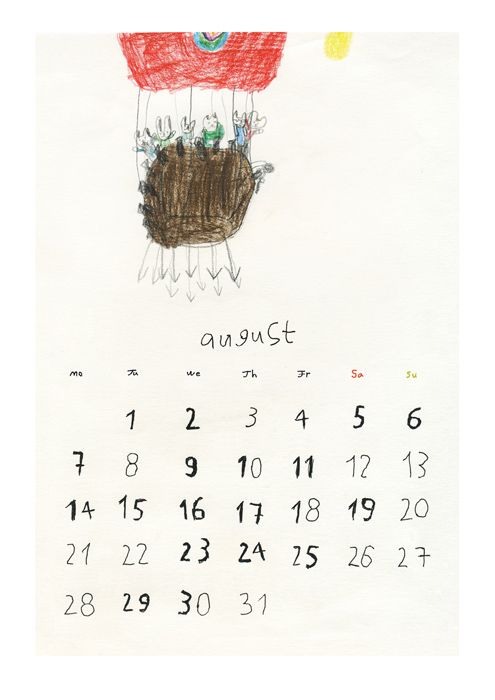 august
mo Tu we Th Fr Sa Su
1 2 3 4 5 6
7 8 9 10 11 12 13
14 15 16 17 18 19 20
21 22 23 24 25 26 27
28 29 30 31